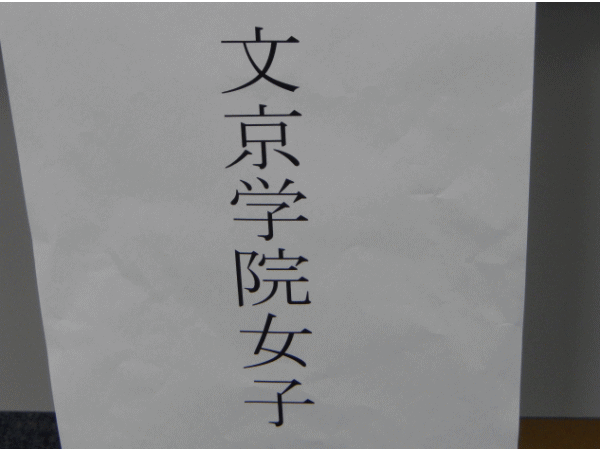 文京学院女子